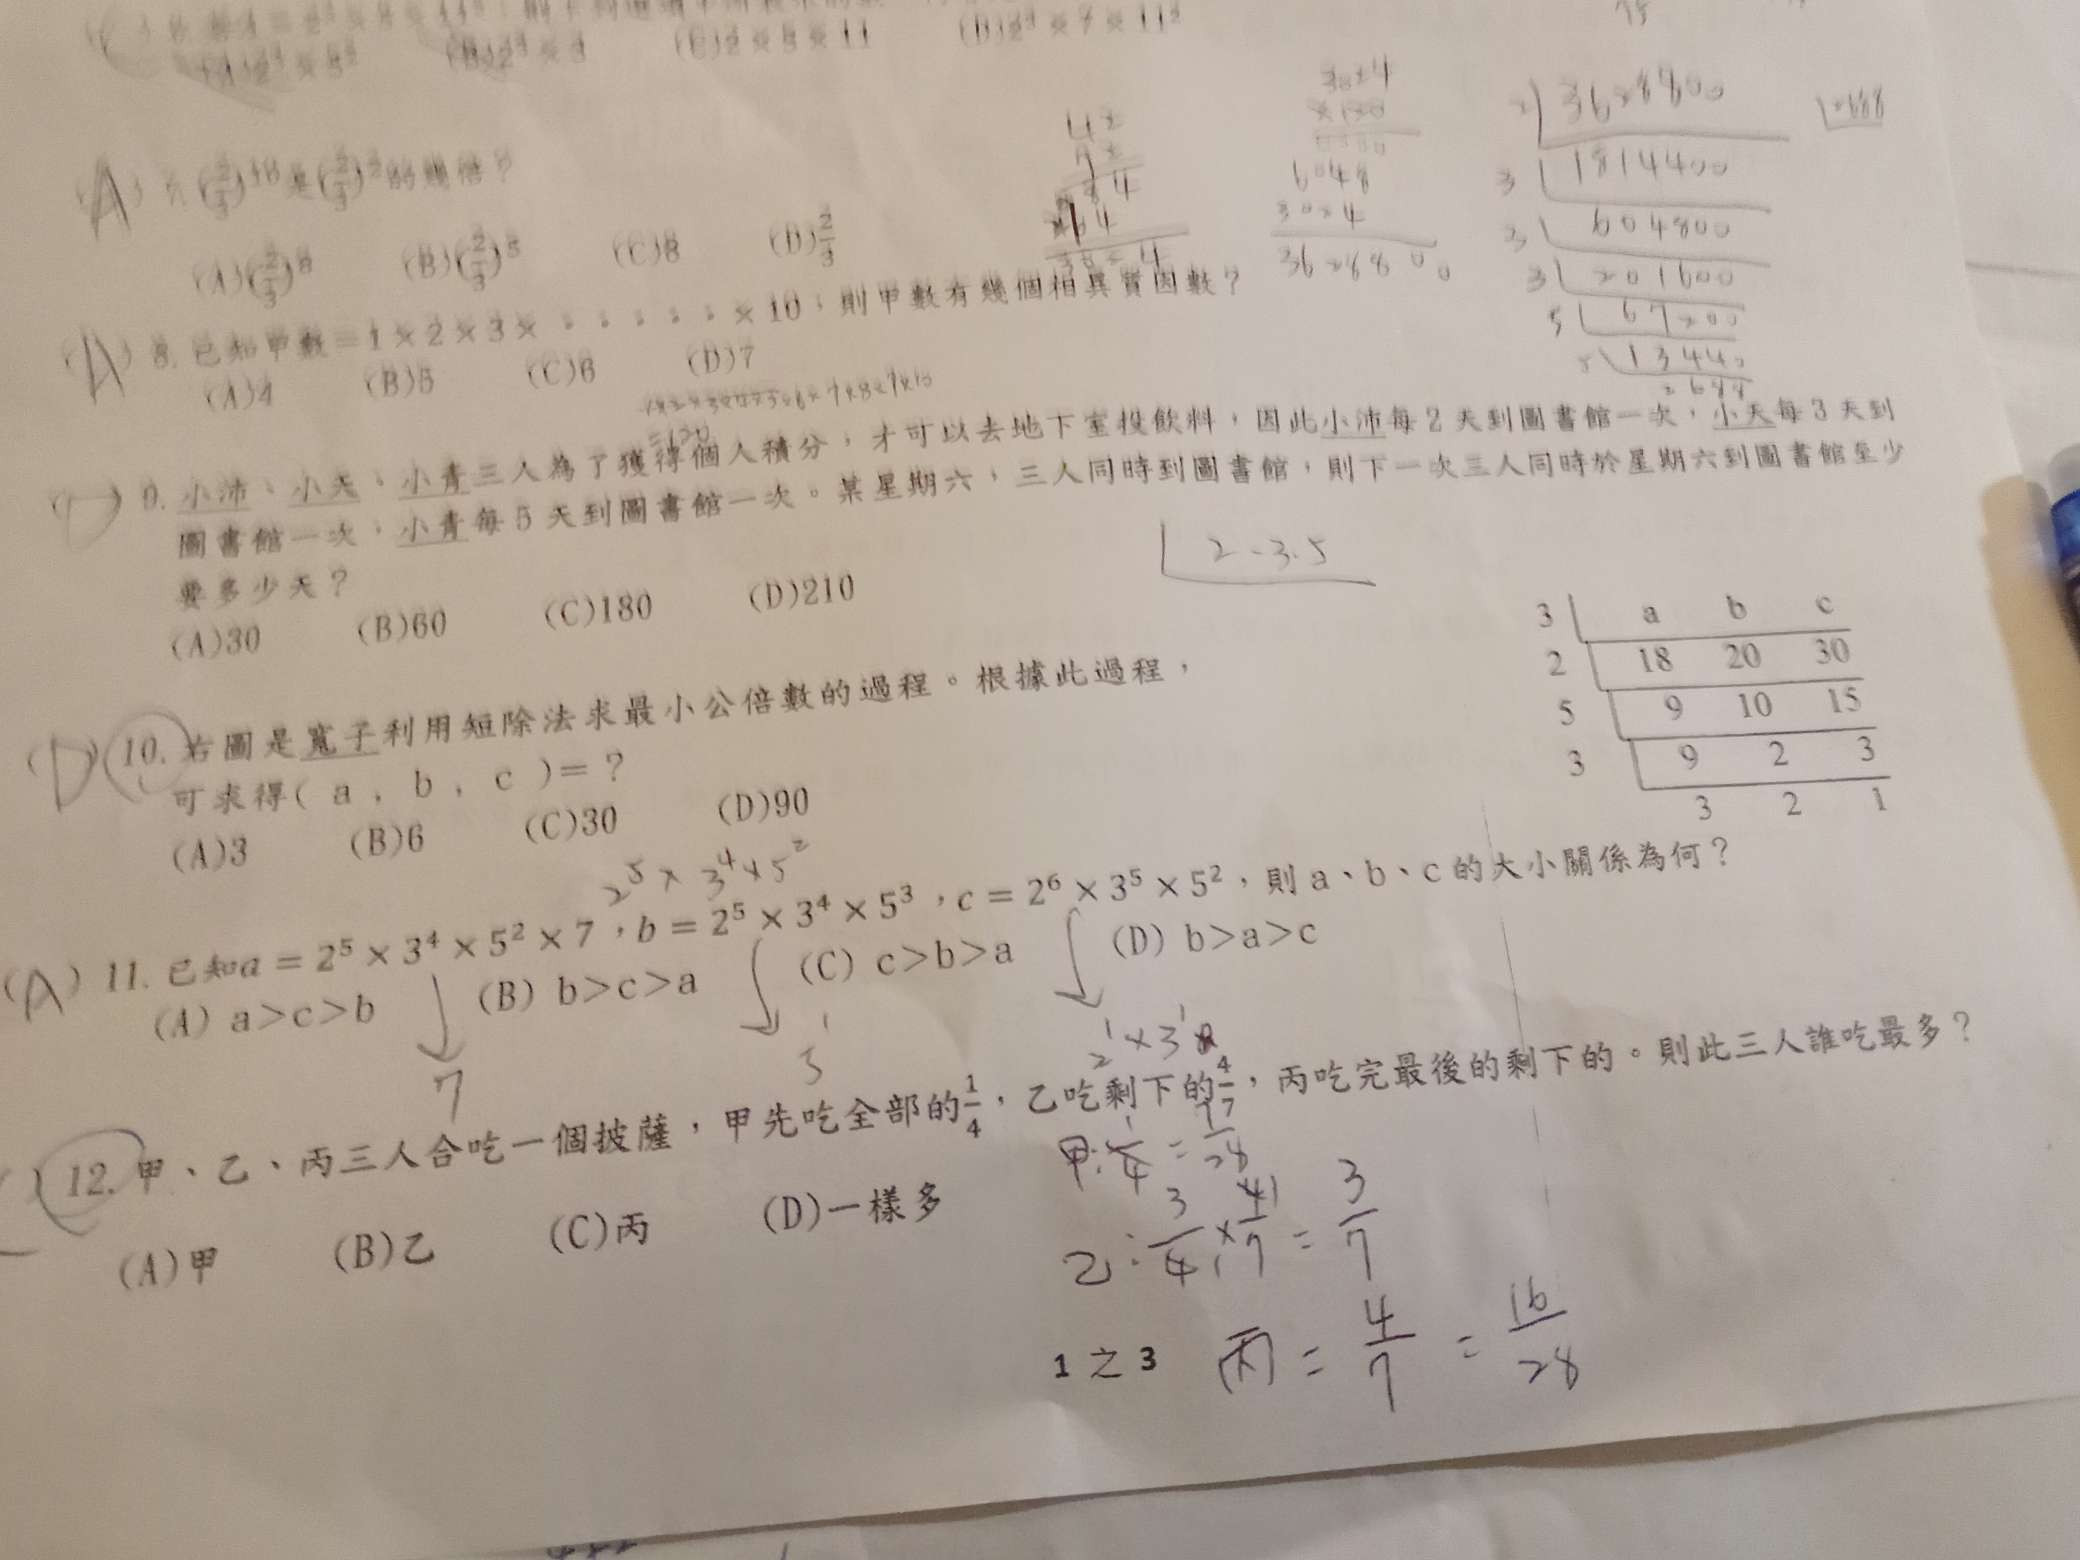 (A) 7. (2/3)^10 是(2/3)^2的幾倍？
(A)(2/3)^8 (B)(2/3)^5 (C)8 (D)2/3
(A) 8. 已知甲數=1×2×3×‧‧‧‧‧×10，則甲數有幾個相異質因數？
(A)4 (B)5 (C)6 (D)7
1×2×3×4×5×6×7×8×9×10
=120
( ) 9. 小沛、小天、小青三人為了獲得個人積分，才可以去地下室投飲料，因此小沛每2天到圖書館一次，小天每3天到
圖書館一次，小青每5天到圖書館一次。某星期六，三人同時到圖書館，則下一次三人同時於星期六到圖書館至少
要多少天？
2-3.5
(A)30 (B)60 (C)180 (D)210
(D) 10. 右圖是寬子利用短除法求最小公倍數的過程。根據此過程，
可求得( a , b , c )=？
(A)3 (B)6 (C)30 (D)90
3 a b c
2 18 20 30
5 9 10 15
3 9 2 3
3 2 1
2^5 × 3^4 × 5^2
(A) 11. 已知a = 2^5 × 3^4 × 5^2 × 7，b = 2^5 × 3^4 × 5^3，c = 2^6 × 3^5 × 5^2，則 a、b、c 的大小關係為何？
(A) a>c>b (B) b>c>a (C) c>b>a (D) b>a>c
7 5^1 2^1 × 3^1
( ) 12. 甲、乙、丙三人合吃一個披薩，甲先吃全部的1/4，乙吃剩下的4/7，丙吃完最後的剩下的。則此三人誰吃最多？
(A)甲 (B)乙 (C)丙 (D)一樣多
甲:1/4 = 7/28
乙:3/4 × 4/7 = 3/7
丙 = 4/7 = 16/28
1 之 3
42
3024
6048
3024
3628800
2 3628800
3 1814400
3 604800
3 201600
5 67200
5 13440
2688
2688